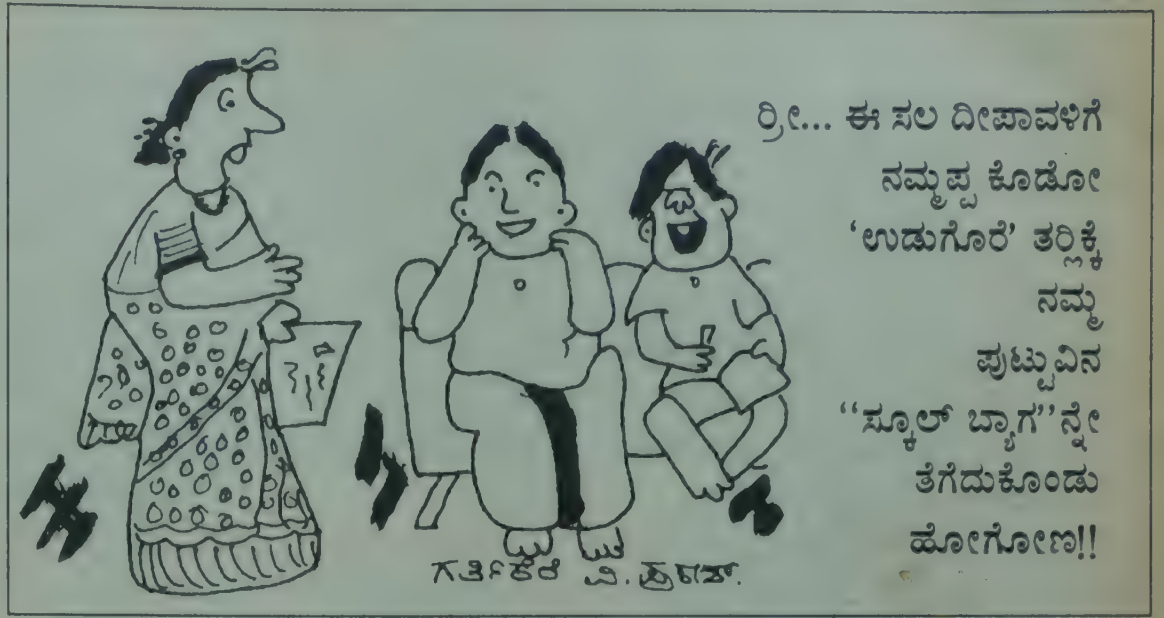 ರ್ರೀ... ಈ ಸಲ ದೀಪಾವಳಿಗೆ
ನಮ್ಮಪ್ಪ ಕೊಡೋ
'ಉಡುಗೊರೆ' ತರ್ಲಿಕ್ಕೆ
ನಮ್ಮ
ಪುಟ್ಟುವಿನ
“ಸ್ಕೂಲ್ ಬ್ಯಾಗ”ನ್ನೇ
ತೆಗೆದುಕೊಂಡು
ಹೋಗೋಣ!!
ಗರ್ತಿಕೆರೆ ವಿ. ಪ್ರಕಾಶ್.